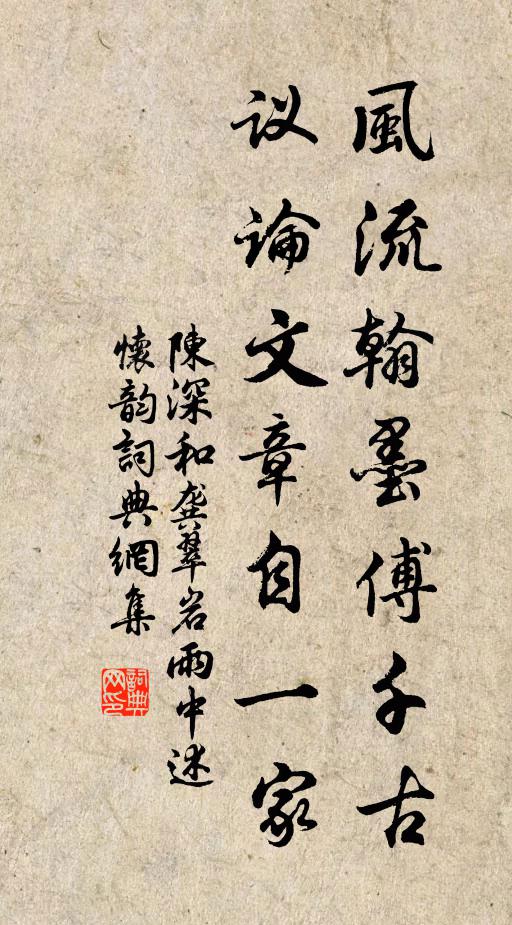 風流翰墨傅千古
议論文章自一家
陳深和龚翠岩雨中述
懷韵詞典網集
詞典
网印